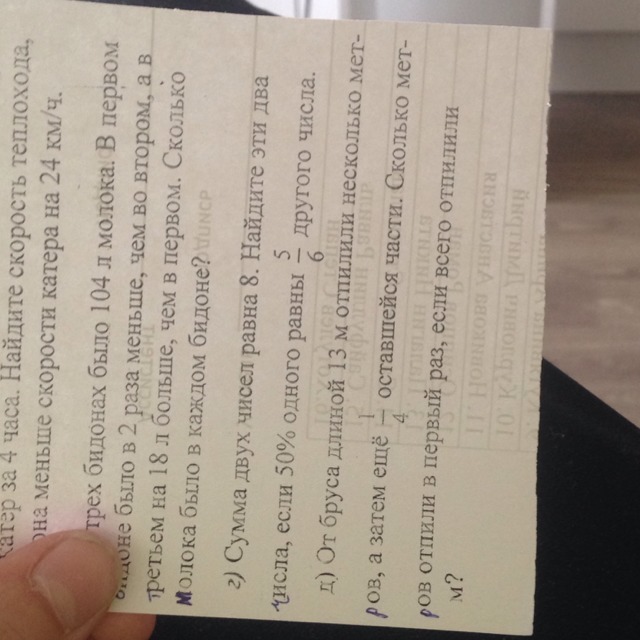 катер за 4 часа. Найдите скорость теплохода,
она меньше скорости катера на 24 км/ч.
трех бидонах было 104 л молока. В первом
бидоне было в 2 раза меньше, чем во втором, а в
третьем на 18 л больше, чем в первом. Сколько
молока было в каждом бидоне?
г) Сумма двух чисел равна 8. Найдите эти два
числа, если 50% одного равны 5/6 другого числа.
д) От бруса длиной 13 м отпилили несколько мет-
ров, а затем ещё 1/4 оставшейся части. Сколько мет-
ров отпили в первый раз, если всего отпилили
м?